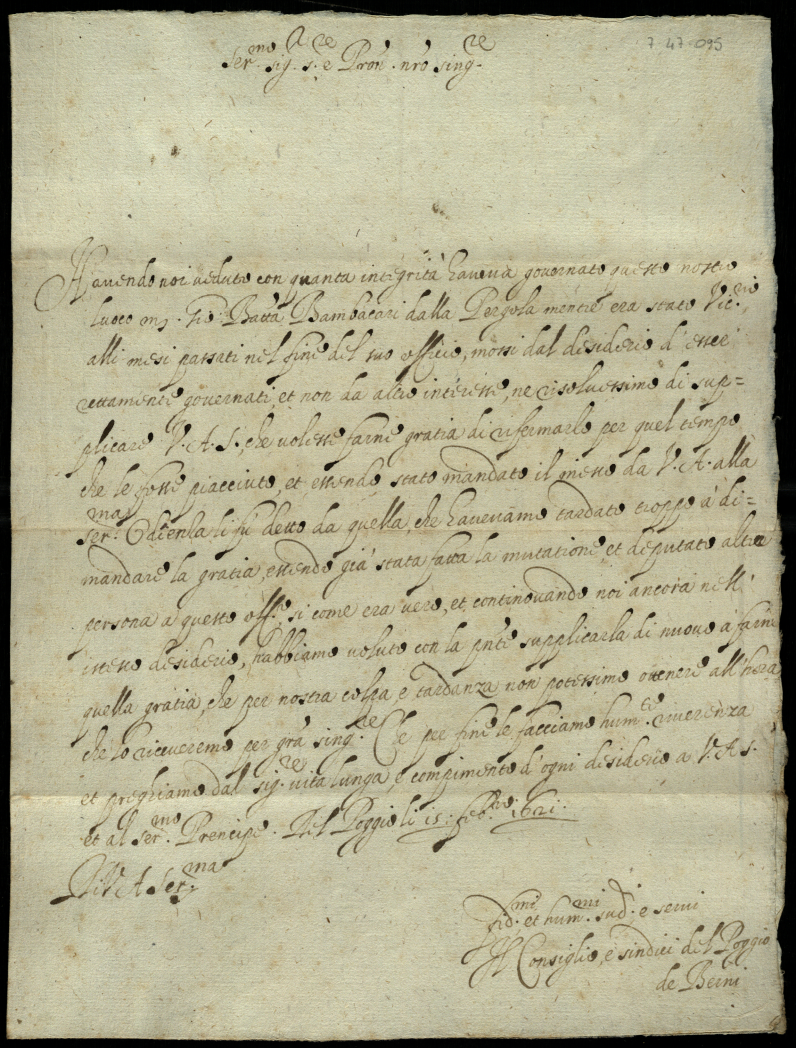 7-47-095
Ser.mo Sig.re S.r e Pron̄. nr̄o sing.re
Havendo noi veduto con quanta integrità haveva governato questo nostro
luoco m. Gio: Batta Bambacari dalla Pergola mentre era stato Vic.rio
alli mesi passati nel fine del suo officio, mossi dal desiderio d'esser
rettamente governati et non da altro interesse, ne risolvessimo di sup=
plicare V. A. S. che volesse farne gratia di rifermarlo per quel tempo
che le fosse piacciuto, et essendo stato mandato il messo da V. A. alla
Ser.ma Udienza li fu detto da quella, che havevamo tardato troppo à di=
mandare la gratia, essendo già stata fatta la mutatione et deputato altra
persona a questo off.o si come era vero, et continovando noi ancora nell'
istesso desiderio, habbiamo voluto con la pn̄te supplicarla di nuovo à farne
quella gratia, che per nostra colpa e tardanza non potessimo ottenere all'hora
che lo riceveremo per gr̄a sing.re E per fine le facciamo hum.te riverenza
et preghiamo dal Sig.re vita lunga, e compimento d'ogni desiderio a V. A. S.
et al Ser.mo Prencipe. Del Poggio li 15: feb.ro 1621.
Di V. A. Ser.ma
fid.mi et hum.mi sud.i e servi
Il Consiglio, e sindici del Poggio
de Berni